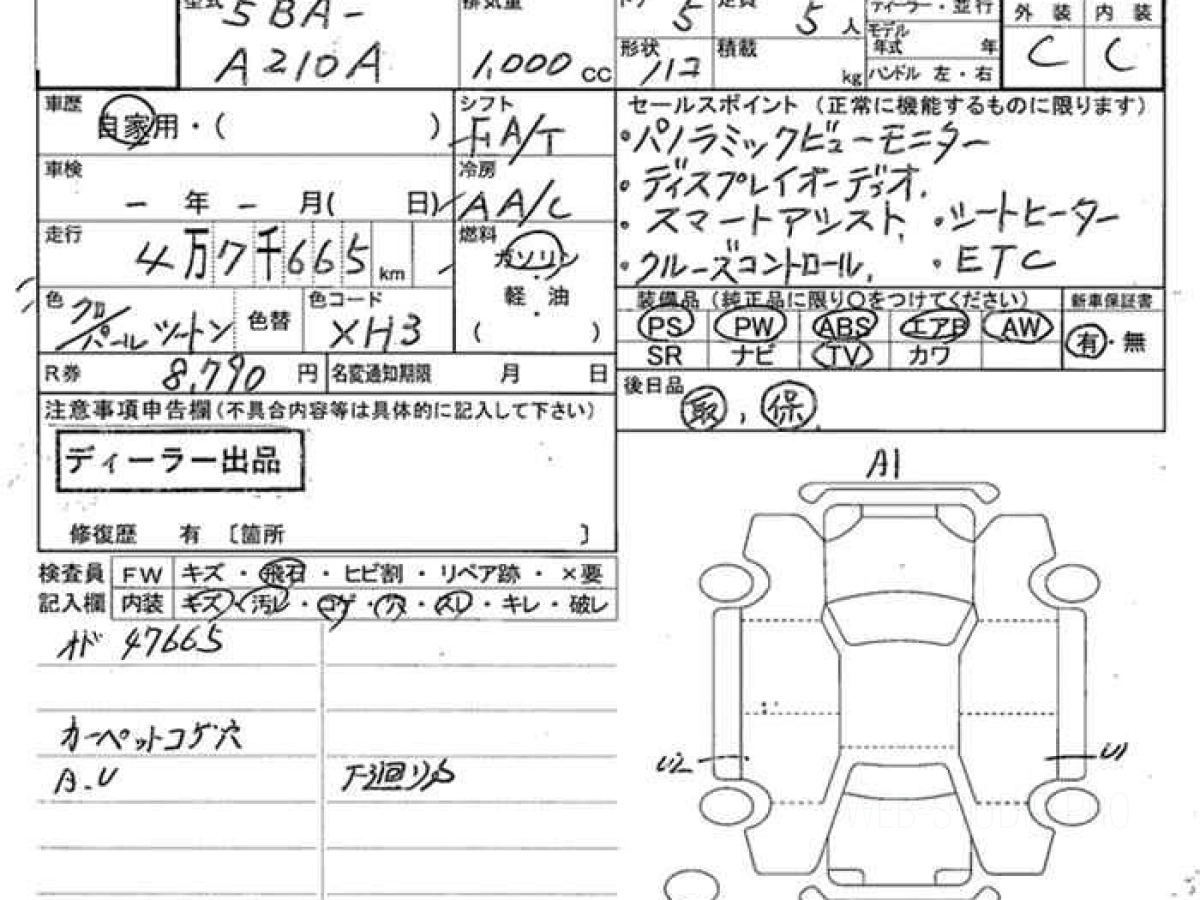 型式 5BA- 排気量 ドア 5 定員 5 人 ディーラー・並行 外装 内装
A210A 1,000 cc 形状 ハコ 積載 kg モデル年式 年 C C
ハンドル 左・右
車歴 自家用・( ) シフト FA/T セールスポイント (正常に機能するものに限ります)
・パノラミックビューモニター
車検 - 年 - 月( 日) 冷房 AA/C ・ディスプレイオーディオ.
・スマートアシスト, ・シートヒーター
走行 4万7千665km 燃料 ガソリン ・クルーズコントロール, ・ETC
軽・油
( )
色 ツートン 色替 色コード XH3 装備品 (純正品に限り○をつけてください) 新車保証書
パール PS PW ABS エアB AW 有・無
SR ナビ TV カワ
R券 8,790 円 名変通知期限 月 日 後日品 取, 保.
注意事項申告欄(不具合内容等は具体的に記入して下さい)
ディーラー出品
修復歴 有 〔箇所 〕
検査員 FW キズ・飛石・ヒビ割・リペア跡・×要
記入欄 内装 キズ・汚レ・コゲ・穴・スレ・キレ・破レ
オド 47665
カーペットコゲ穴
A.U 下廻りサ
A1
U2 U1
WEB-STUDIO.PRO